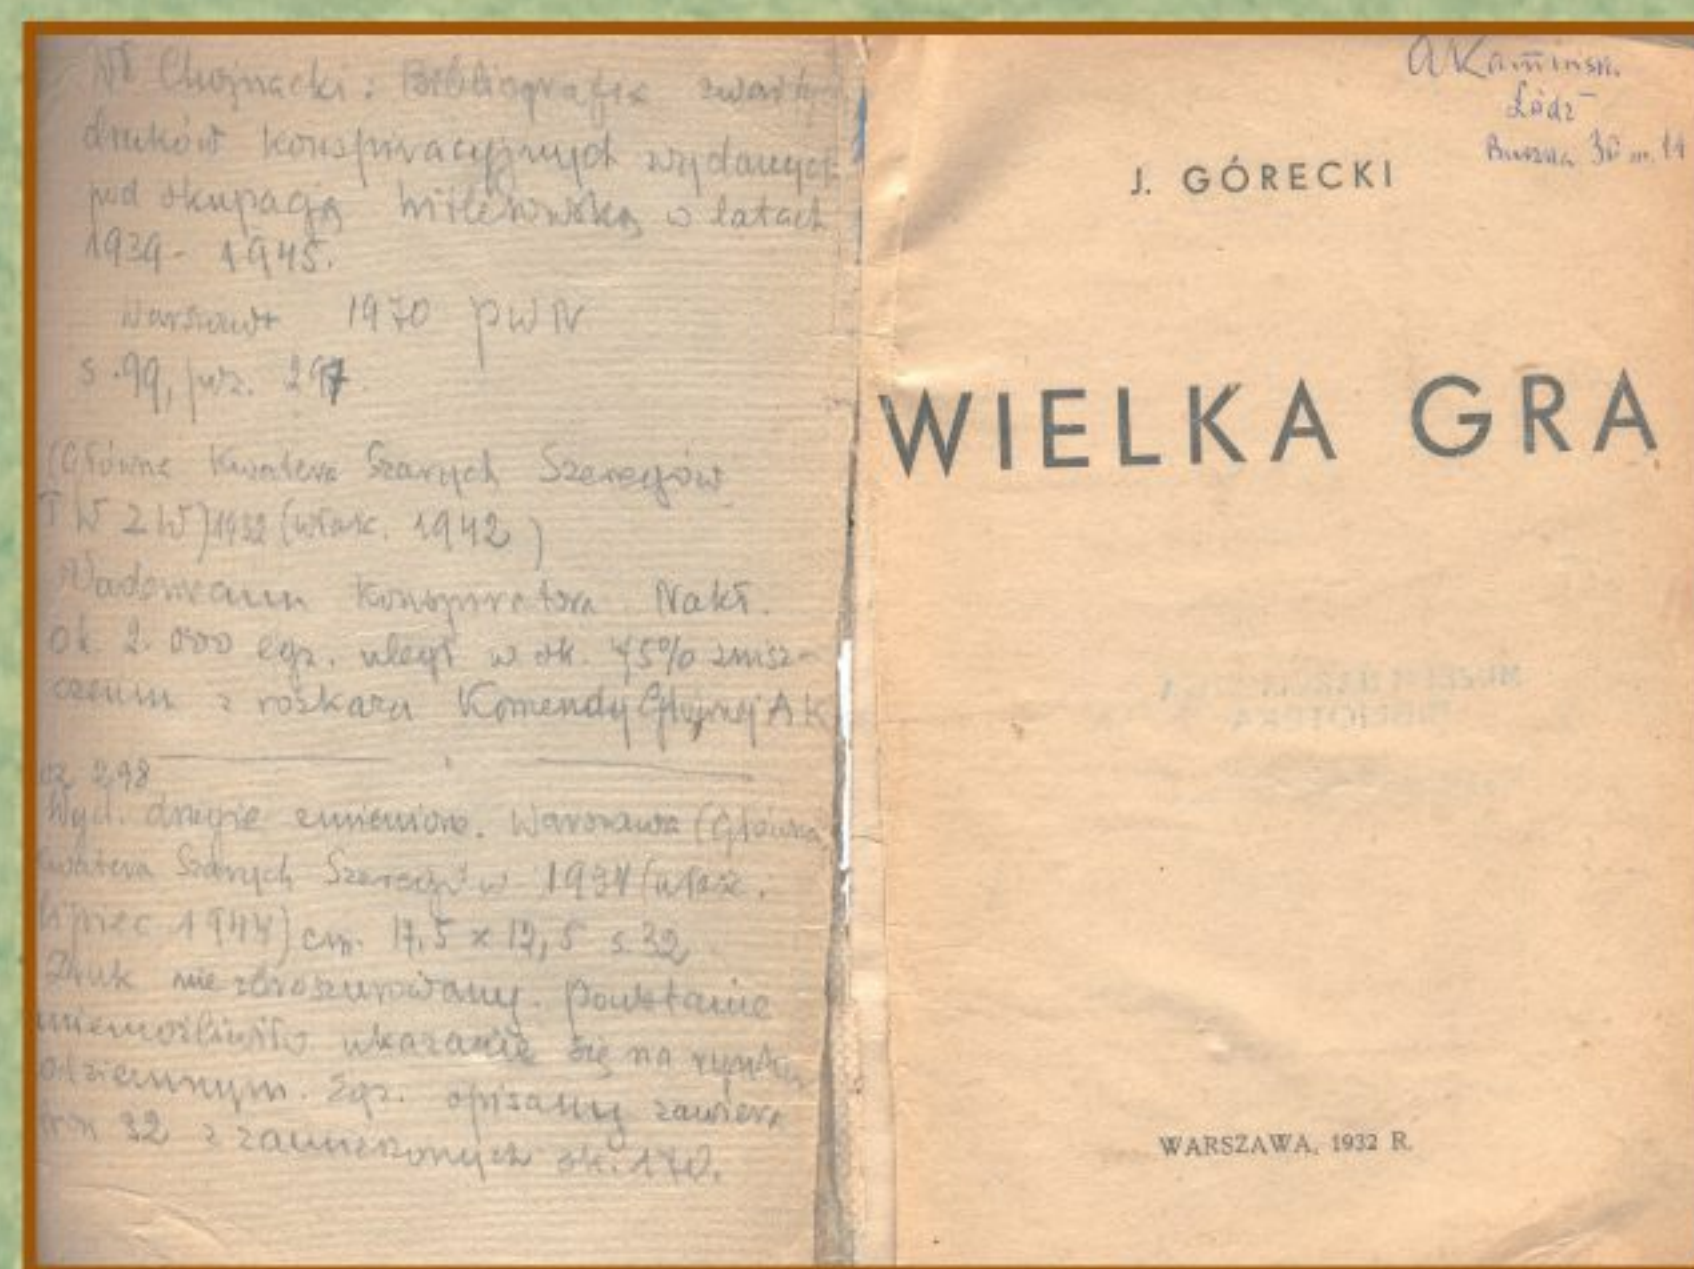 Wł Chojnacki: Bibliografia zwartych
druków konspiracyjnych wydanych
pod okupacją hitlerowską w latach
1939 - 1945.
Warszawa 1970 PWN
s. 99, poz. 297.
(Główna Kwatera Szarych Szeregów
TWZW) 1932 (właśc. 1942)
Vademecum Konspiratora Nakł.
ok. 2.000 egz. uległ w ok. 75% znisz-
czeniu z rozkazu Komendy Głównej AK
oz 298
Wyd. drugie zmienione. Warszawa (Główna
Kwatera Szarych Szeregów 1934 (właśc.
lipiec 1944) cm. 17,5 x 12,5 s 32
Druk nie zbroszurowany. Powstanie
uniemożliwiło ukazanie się na rynku
Egz. opisany zawiera
32 z zamierzonych ok. 170.
A Kamiński
Łódź
30 m. 14
J. GÓRECKI
WIELKA GRA
WARSZAWA, 1932 R.